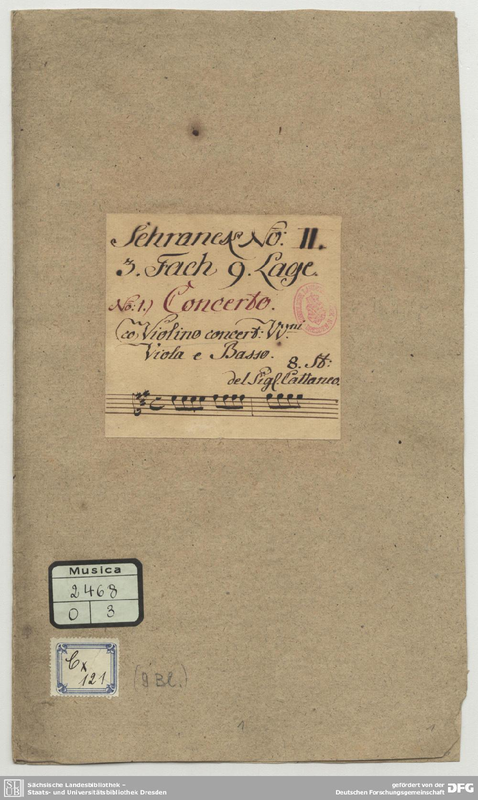 Schranck No: II.
3. Fach 9. Lage.
No: 1.) Concerto.
co Violino concert: VV.ni
Viola e Basso.
8. St:
del Sigl Cattaneo.
Musica
2468
O 3
Cx
121
(9 Bl.)
1
1
SLUB
Sächsische Landesbibliothek –
Staats- und Universitätsbibliothek Dresden
gefördert von der
Deutschen Forschungsgemeinschaft
DFG